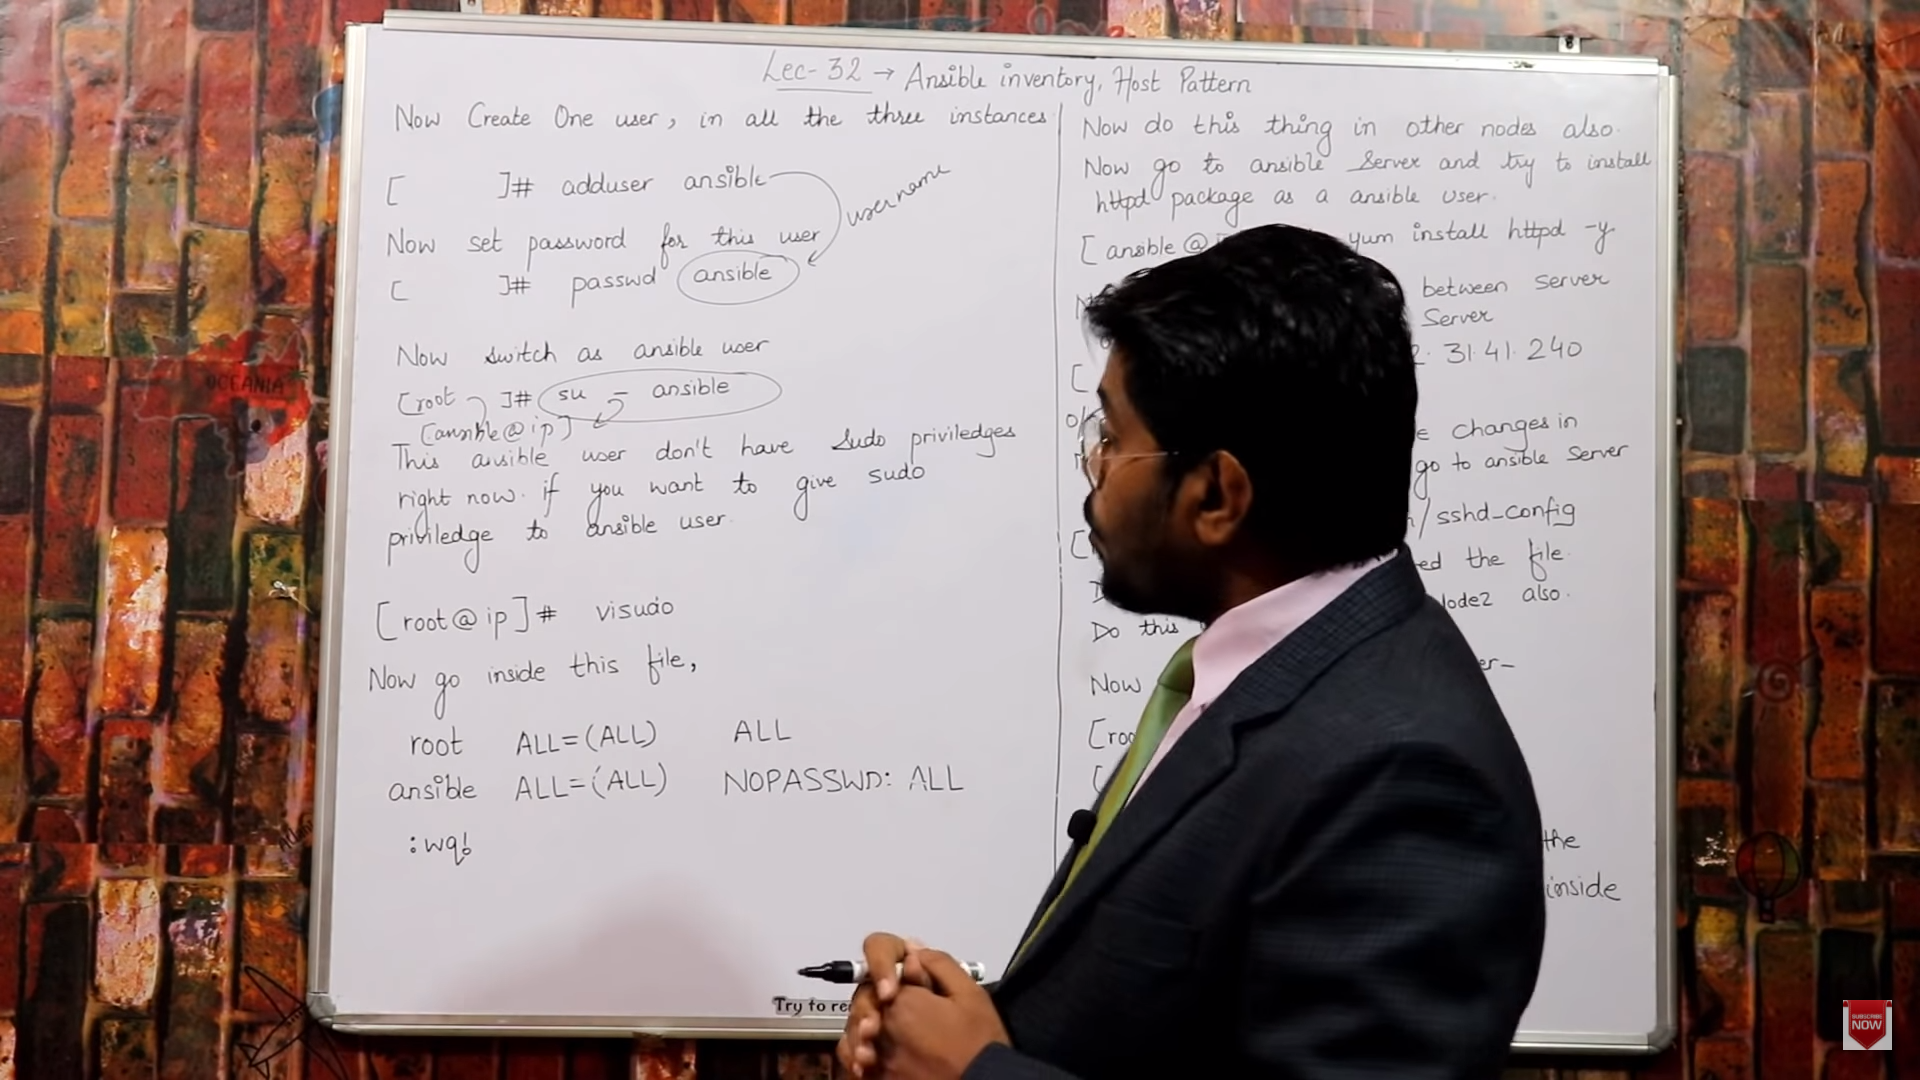 Lec-32 → Ansible inventory, Host Pattern
Now Create One user, in all the three instances
[ ]# adduser ansible
username
Now set password for this user
[ ]# passwd ansible
Now switch as ansible user
[root ]# su - ansible
[ansible@ip]
This ansible user don't have Sudo priviledges
right now. if you want to give sudo
priviledge to ansible user.
[root@ip]# visudo
Now go inside this file,
root ALL=(ALL) ALL
ansible ALL=(ALL) NOPASSWD: ALL
:wq!
Now do this thing in other nodes also.
Now go to ansible Server and try to install
httpd package as a ansible user.
[ansible@ yum install httpd -y
between Server
Server
[ 31.41.240
changes in
go to ansible Server
[ /sshd_config
the file.
also.
Do this
Now
[
(
the
inside
Try to
OCEANIA
SUBSCRIBE
NOW